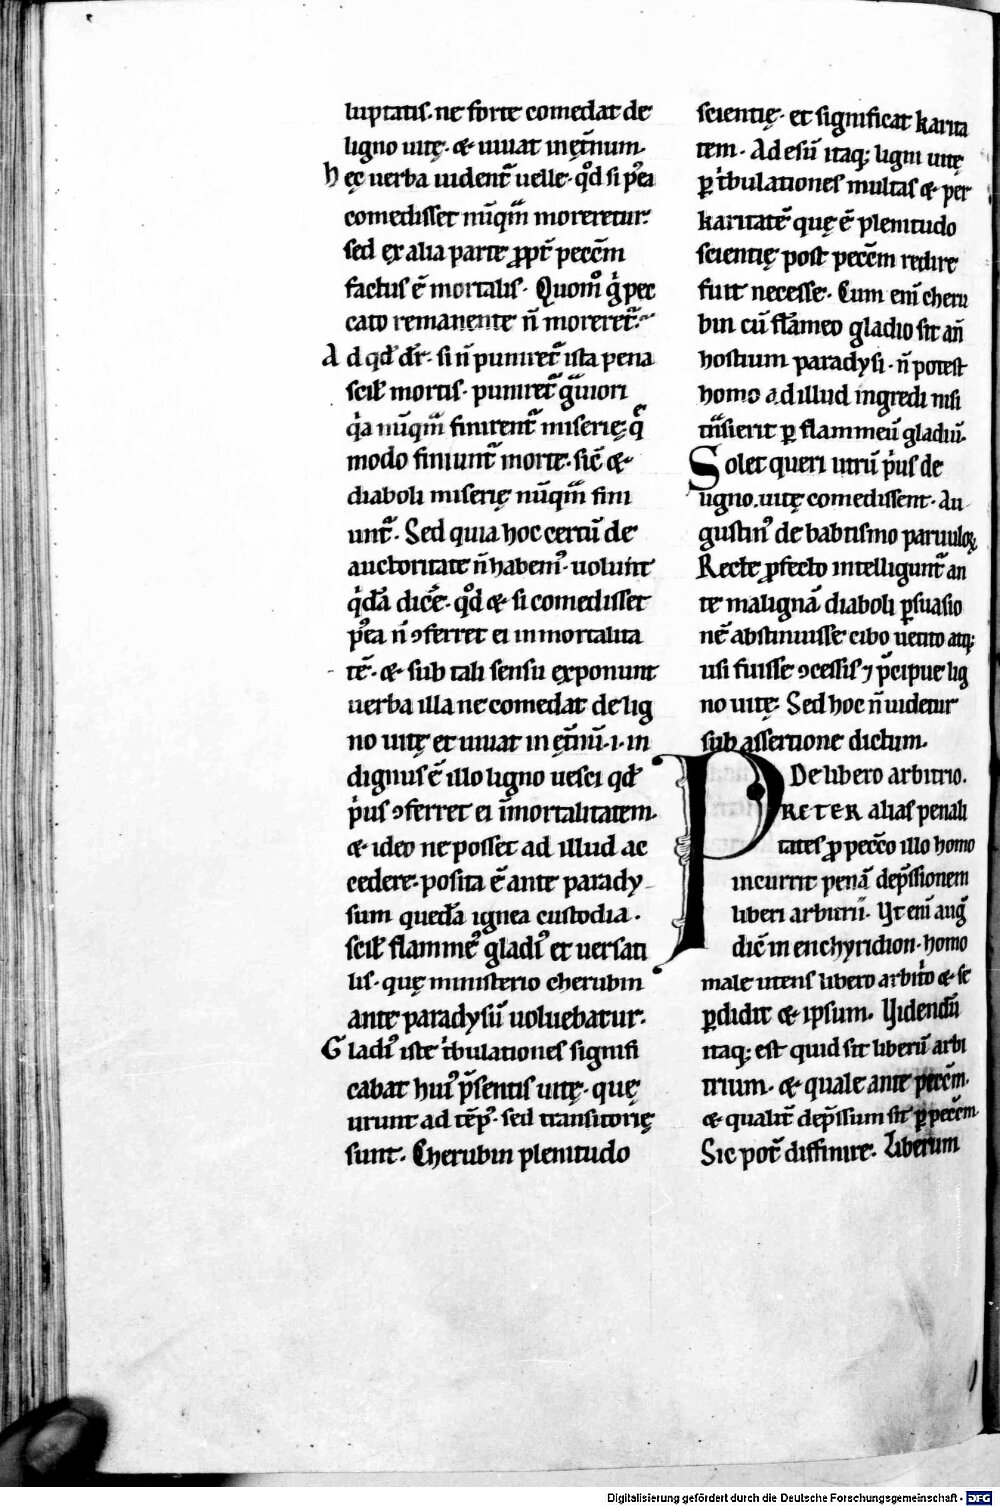 luptatis. ne forte comedat de
ligno uitę. & uiuat in et̄num.
Hęc uerba uident᷑ uelle. qd̓ si p̓ea
comedisset nūqm̄ moreretur.
sed ex alia parte ꝓpt᷑ pecc̄m
factus ē mortalis. Quom̊ g̊ pec
cato remanente n̄ moreret᷑.
Ad qd̓ dr̄. si n̄ puniret᷑ ista pena
scil̓ mortis. puniret᷑ g̃uiori
q̓a nūqm̄ finirent᷑ miserię; q̃
modo finiunt᷑ morte. sic̄ &
diaboli miserię nūqm̄ fini
unt᷑. Sed quia hoc certū de
auctoritate n̄ habem᷒. uolunt
q̓dā dic̄e. qd̓ & si comedisset
p̓ea n̄ ꝯferret ei inmortalita
tē. & sub tali sensu exponunt
uerba illa ne comedat de lig
no uitę et uiuat in et̄nū .i. in
dignus ē illo ligno uesci qd̓
p̓us ꝯferret ei īmortalitatem.
& ideo ne posset ad illud ac
cedere. posita ē ante parady
sum quedā ignea custodia.
scil̓ flamme᷒ gladi᷒ et uersati
lis. quę ministerio cherubin
ante paradysū uoluebatur.
Gladi᷒ iste t̓bulationes signifi
cabat hui᷒ p̄sentis uitę. quę
urunt ad tēp᷒. sed transitorię
sunt. Cherubin plenitudo
scientię. et significat karita
tem. Ad esū itaq; ligni uitę
ꝑ t̓bulationes multas & per
karitatē quę ē plenitudo
scientię post pecc̄m redire
fuit necesse. Cum eni᷑ cheru
bin cū flāmeo gladio sit an̄
hostium paradysi. n̄ potest
homo ad illud ingredi nisi
tn̄sierit ꝑ flammeū gladiū.
Solet queri utrū p̓us de
ligno uitę comedissent. Au
gustin᷒ de babtismo paruuloꝝ
Recte ꝓfecto intelligunt᷑ an
te malignā diaboli ꝑsuasio
nē abstinuisse cibo uetito atq;
usi fuisse ꝯcessis ⁊ p̄cipue lig
no uitę. Sed hoc n̄ uidetur
sub assertione dictum.
De libero arbitrio.
PRETER alias penali
tates ꝓ pecc̄o illo homo
incurrit penā dep̄ssionem
liberi arbitrii. Vt eni᷑ aug̃
dic̄ in enchyridion. homo
male utens libero arbit̓o & se
ꝑdidit & ipsum. Videndū
itaq; est quid sit liberū arbi
trium. & quale ante pecc̄m.
& qualit᷑ dep̄ssum sit ꝑ pecc̄m.
Sic pot᷑ diffinire. Liberum
Digitalisierung gefördert durch die Deutsche Forschungsgemeinschaft - DFG